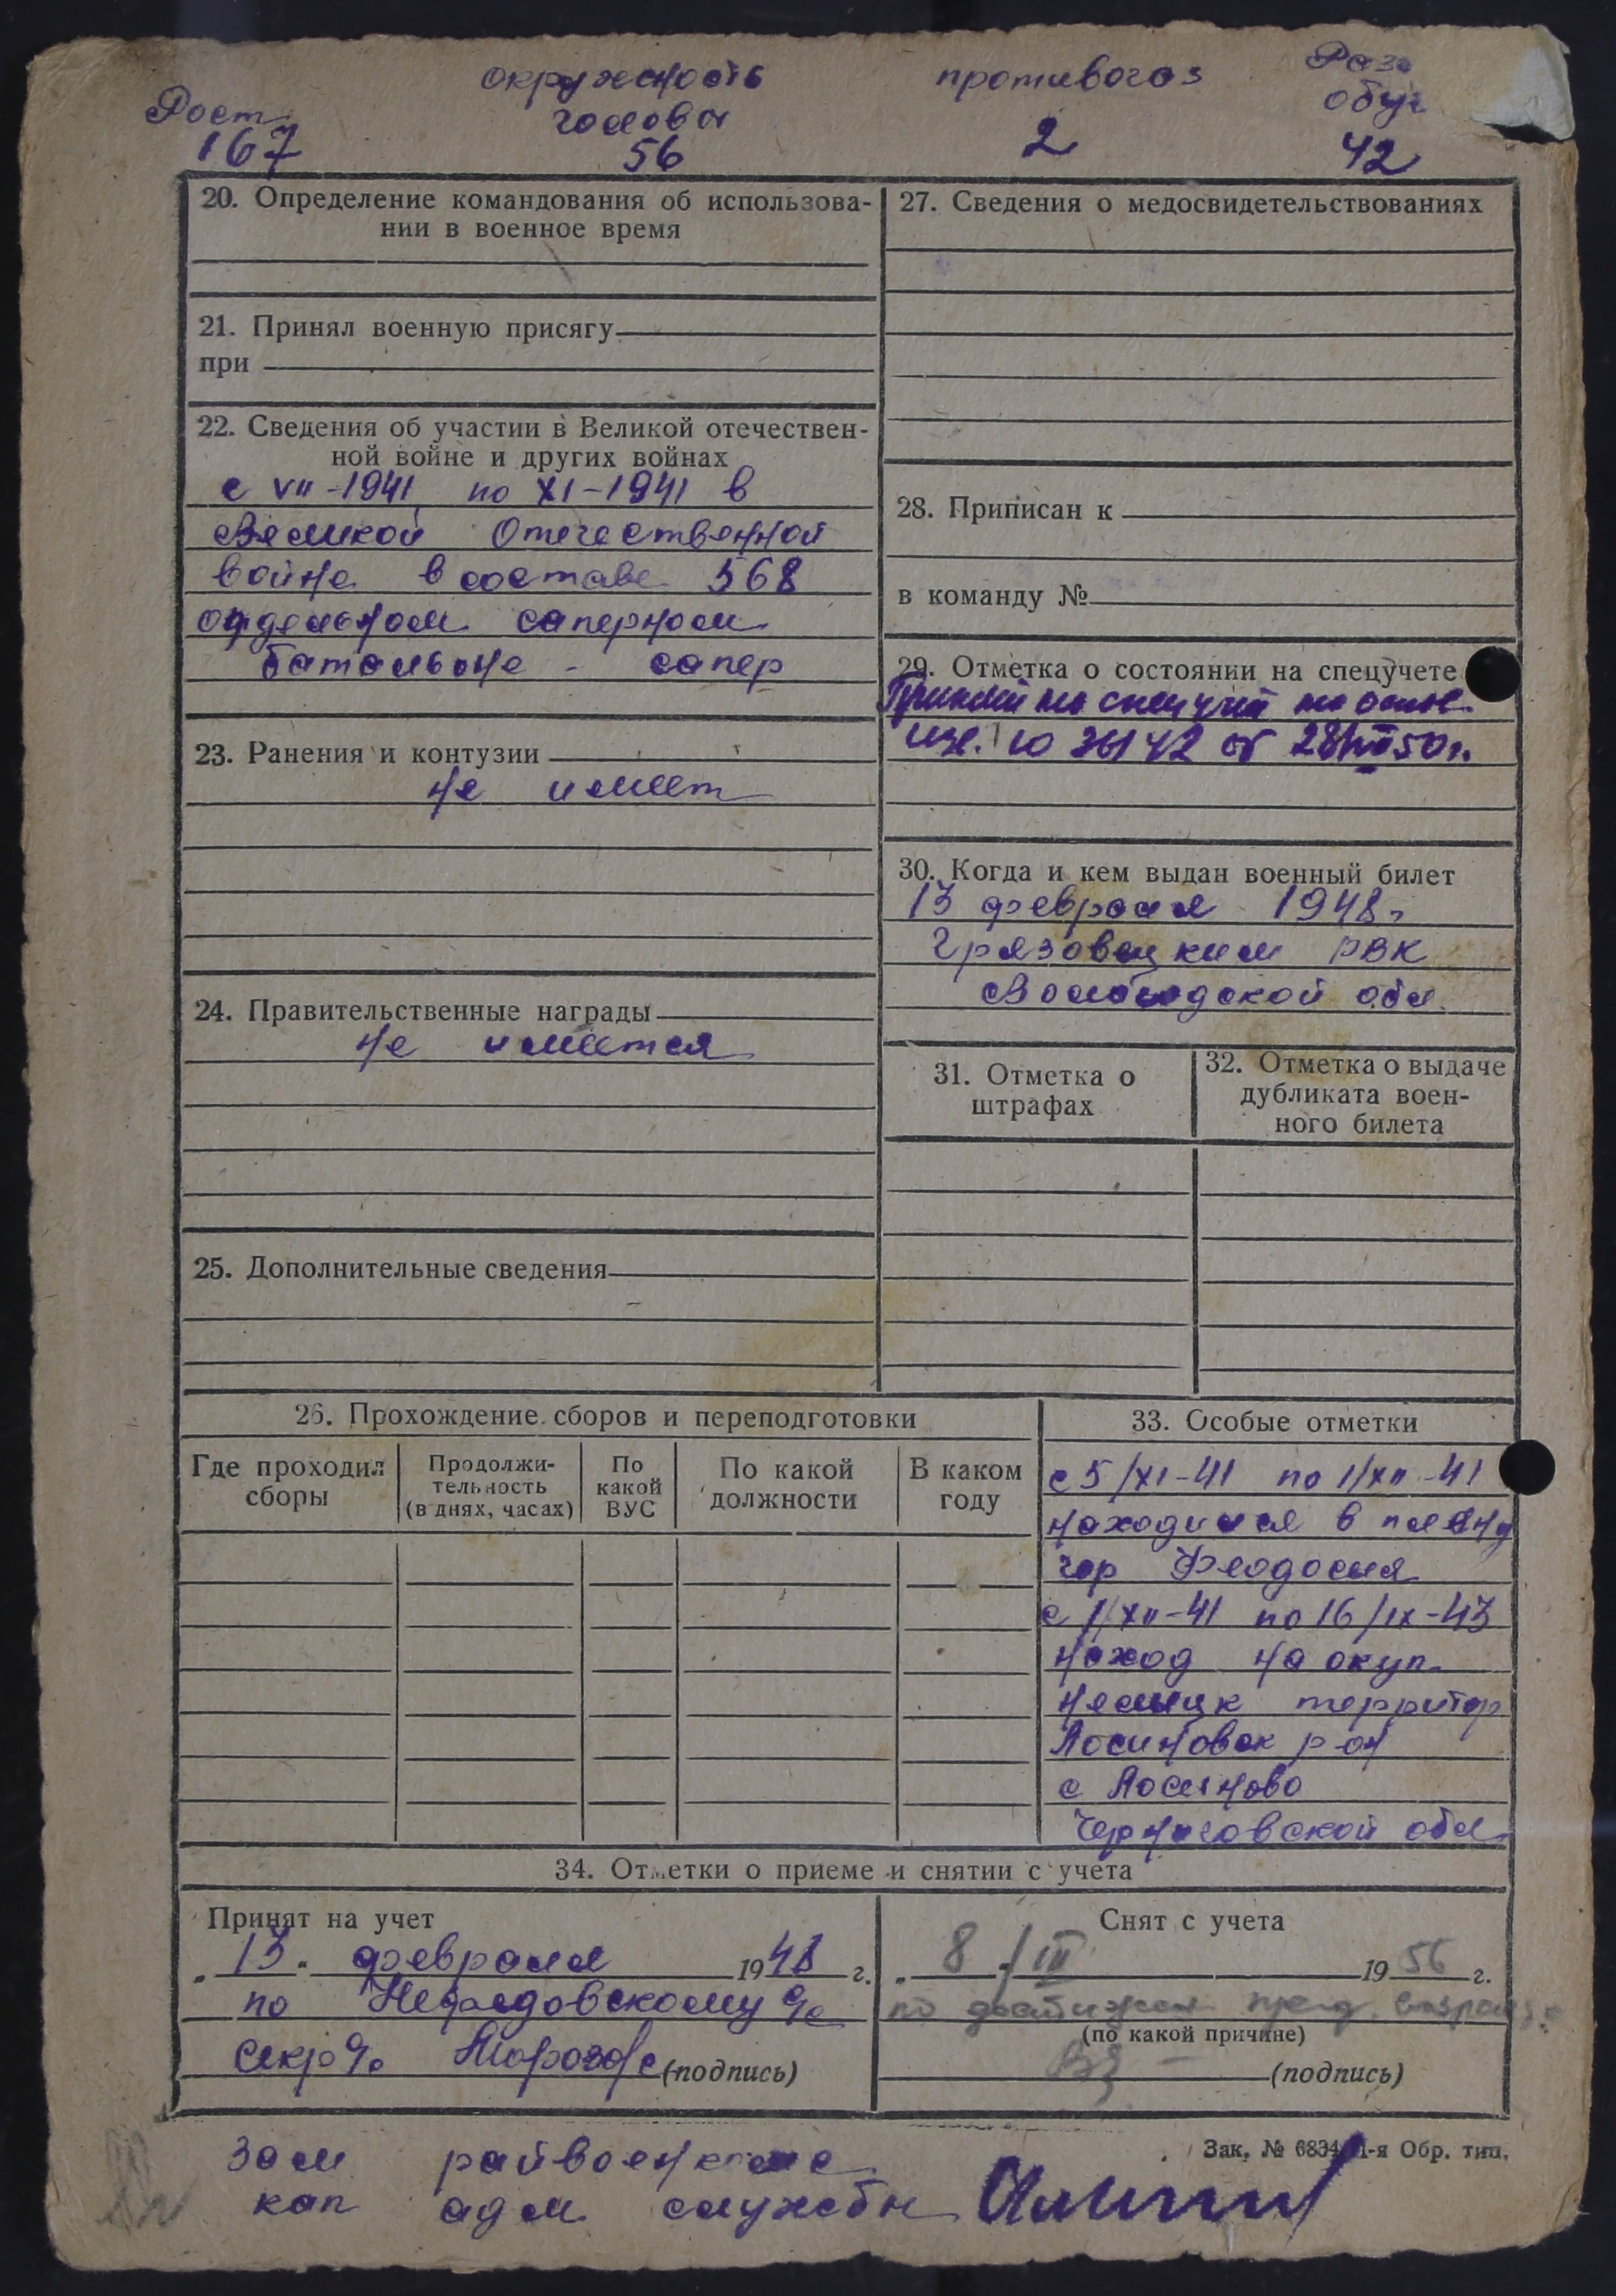 Рост
167
окружность
головы
56
противогаз
2
Раз
обув
42
20. Определение командования об использова-
нии в военное время
21. Принял военную присягу
при
22. Сведения об участии в Великой отечествен-
ной войне и других войнах
с VII-1941 по XI-1941 в
Великой Отечественной
войне в составе 568
отдельном саперном
батальоне - сапер
23. Ранения и контузии
не имеет
24. Правительственные награды
не имеется
25. Дополнительные сведения
27. Сведения о медосвидетельствованиях
28. Приписан к
в команду №
29. Отметка о состоянии на спецучете
на спец учет на
от 28/VIII 50 г.
30. Когда и кем выдан военный билет
13 февраля 1948г
Грязовецким РВК
Вологодской обл.
31. Отметка о
штрафах
32. Отметка о выдаче
дубликата воен-
ного билета
26. Прохождение сборов и переподготовки
Где проходил
сборы
Продолжи-
тельность
(в днях, часах)
По
какой
ВУС
По какой
должности
В каком
году
33. Особые отметки
с 5/XI-41 по 1/XII-41
находился в плену
гор Феодосия
с 1/XII-41 по 16/IX-43
наход на окуп.
немецк территор
Лосиновск р-он
с Лосиново
Черниговской обл.
34. Отметки о приеме и снятии с учета
Принят на учет
"13" февраля 1948 г.
по Нефедовскому с/с
секр с/с (подпись)
Снят с учета
"8"/III 1956 г.
по достижен. пред. возраста
(по какой причине)
(подпись)
Зак. № 6834 1-я Обр. тип.
Зам райвоенкома
кап адм службы